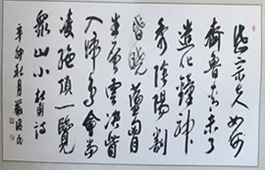 岱宗夫如何
齊魯青未了
造化鐘神
秀陰陽割
昏曉盪胸
生層雲決眥
入歸鳥會當
凌絕頂一覽
眾山小杜甫詩
辛卯秋月